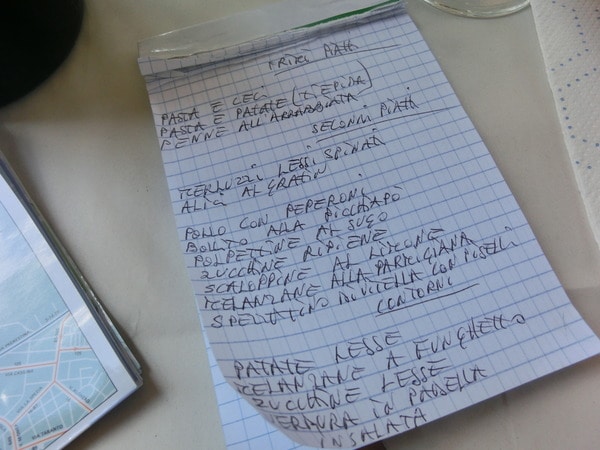 PRIMI PIATTI
PASTA E CECI
PASTA E PATATE (TIEPIDA)
PENNE ALL'ARRABBIATA
SECONDI PIATTI
MERLUZZI LESSI SPINATI
ALICI AL GRATIN
POLLO CON PEPERONI
BOLLITO ALLA PICCHIAPÒ
POLPETTINE AL SUGO
ZUCCHINE RIPIENE
SCALOPPINE AL LIMONE
MELANZANE ALLA PARMIGIANA
SPEZZATINO DI VITELLA CON PISELLI
CONTORNI
PATATE LESSE
MELANZANE A FUNGHETTO
ZUCCHINE LESSE
VERDURA IN PADELLA
INSALATA